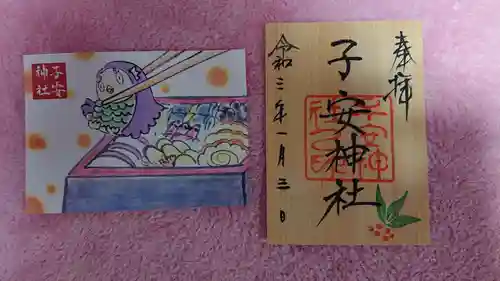 子安
神社
奉拝
子安神社
令和三年一月三日